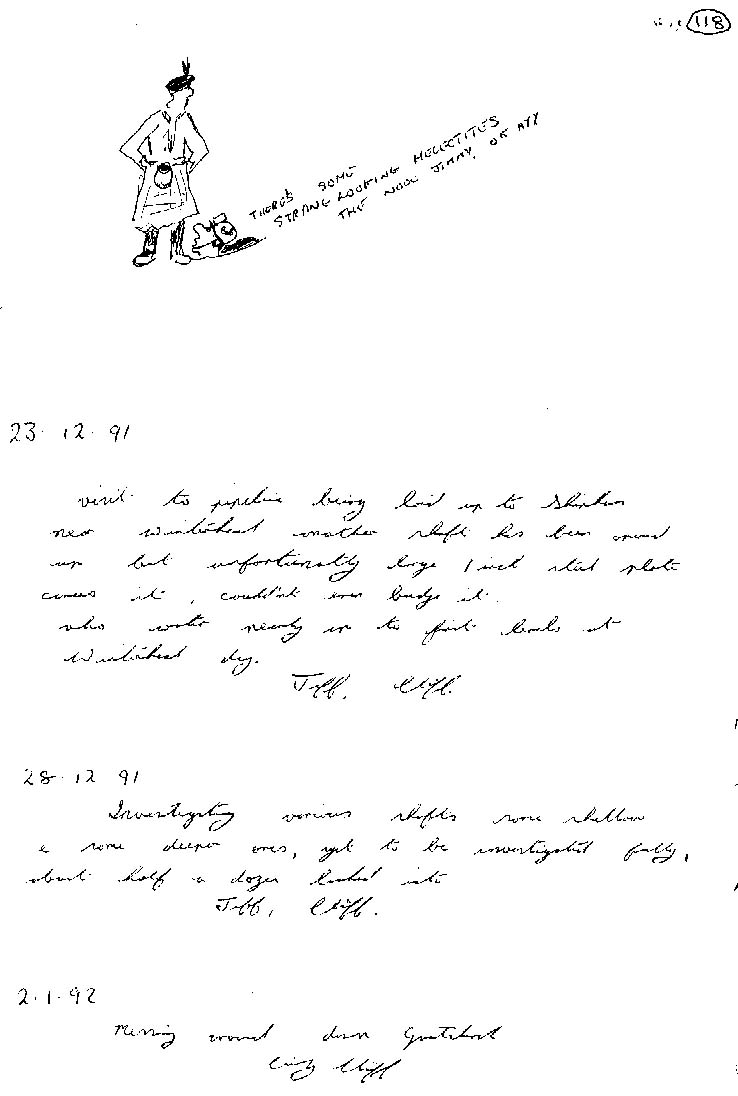 118
THERE'S SOME
STRANG LOOKING HELECTITES
THE NOOO JIMMY, OK AYY
23. 12. 91
visit to pipeline being laid up to
near another shaft has been opened
up but unfortunatly large 1 inch steel plate
covers it, couldn't even budge it.
who went nearly up to first levels at
day.
Jeff, Cliff.
28. 12 91
Investigating various shafts some shallow
& some deeper ones, yet to be investigated fully,
about half a dozen looked into
Jeff, Cliff.
2. 1. 92
Messing around down
Cliff